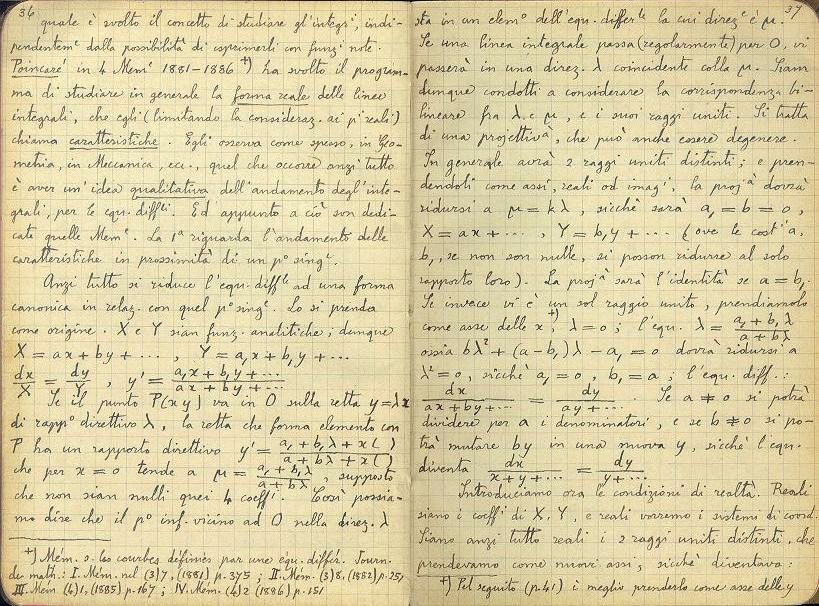 36
quale è svolto il concetto di studiare gl'integri, indi-
pendentemᵉ dalla possibilità di esprimerli con funzⁱ note.
Poincaré in 4 Memᵉ 1881-1886 +) ha svolto il program-
ma di studiare in generale la forma reale delle linee
integrali, che egli (limitando la consideraz. ai pⁱ reali)
chiama caratteristiche. Egli osserva come spesso, in Geo-
metria, in Meccanica, ecc., quel che occorre anzi tutto
è aver un'idea qualitativa dell'andamento degl'inte-
grali, per le equ. diffˡⁱ. Ed appunto a ciò son dedi-
cate quelle Memᵉ. La 1ª riguarda l'andamento delle
caratteristiche in prossimità di un pº singᵉ.
Anzi tutto si riduce l'equ. diffˡᵉ ad una forma
canonica in relaz. con quel pº singᵉ. Lo si prenda
come origine. X e Y sian funz. analitiche; dunque
X = ax + by + ⋯ , Y = a₁x + b₁y + ⋯
dx/X = dy/Y , y' = (a₁x + b₁y + ⋯)/(ax + by + ⋯)
Se il punto P(xy) va in O sulla retta y = λx
di rappº direttivo λ, la retta che forma elemento con
P ha un rapporto direttivo y' = (a₁ + b₁λ + x( ))/(a + bλ + x( ))
che per x = 0 tende a μ = (a₁ + b₁λ)/(a + bλ), supposto
che non sian nulli quei 4 coeffⁱ. Così possia-
mo dire che il pº inf. vicino ad O nella direz. λ
+) Mém. s. les courbes définies par une équ. différ. Journ.
de math.: I. Mém. nel (3)7, (1881) p.375 ; II. Mém. (3)8, (1882) p.251
III. Mém (4)1, (1885) p.167 ; IV. Mém. (4)2 (1886) p.151
37
sta in un elemº dell'equ. differˡᵉ la cui direzᵉ è μ.
Se una linea integrale passa (regolarmente) per O, vi
passerà in una direz. λ coincidente colla μ. Siam
dunque condotti a considerare la corrispondenza bi-
lineare fra λ e μ, e i suoi raggi uniti. Si tratta
di una projettività, che può anche essere degenere.
In generale avrà 2 raggi uniti distinti; e pren-
dendoli come assi, reali od imagⁱ, la projᵃ dovrà
ridursi a μ = kλ, sicchè sarà a₁ = b = 0,
X = ax + ⋯ , Y = b₁y + ⋯ (ove le costⁱ a,
b₁, se non son nulle, si posson ridurre al solo
rapporto loro). La projᵃ sarà l'identità se a = b₁
Se invece vi è un sol raggio unito, prendiamolo
come asse delle x +), λ = 0; l'equ. λ = (a₁ + b₁λ)/(a + bλ)
ossia bλ² + (a - b₁)λ - a₁ = 0 dovrà ridursi a
λ² = 0, sicchè a₁ = 0, b₁ = a; l'equ. diff.:
dx/(ax + by + ⋯) = dy/(ay + ⋯) . Se a ≠ 0 si potrà
dividere per a i denominatori, e se b ≠ 0 si po-
trà mutare by in una nuova y, sicchè l'equ.
diventa dx/(x + y + ⋯) = dy/(y + ⋯)
Introduciamo ora le condizioni di realtà. Reali
siano i coeffⁱ di X, Y, e reali vorremo i sistemi di coord.
Siano anzi tutto reali i 2 raggi uniti distinti, che
prendevamo come nuovi assi, sicchè diventava:
+) Pel seguito (p.41) è meglio prenderlo come asse delle y